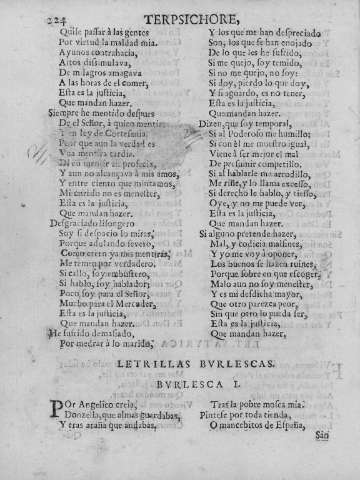 224 TERPSICHORE,
Quise passar à las gentes
Por virtud la maldad mia.
Ayunos contrahacia,
Actos dissimulava,
De milagros amagava
A las horas de el comer,
Esta es la justicia,
Que mandan hazer.
Siempre he mentido despues
De el Señor, à quien mentia
en ley de Cortesania.
Por que aun la verdad es
Vna mentira tardia.
Di en mentir en profecia,
Y aun no alcançava à mis amos,
Y entre ciento que mintamos,
Mi metido no es menester,
Esta es la justicia,
Que mandan hazer.
Desgraciado lisongero
Soy si despacio lo miras,
Porque adulando severo,
Como creen ya mis mentiras,
Me temen por verdadero.
Si callo, soy embustero,
Si hablo, soy hablador;
Poco soy para el Señor,
Mucho para el Mercader,
Esta es la justicia
Que mandan hazer.
He sufrido demasiado,
Por medrar à lo marido,
Y los que me han despreciado
Son, los que se han enojado
De lo que les he sufrido,
Si me quejo, soy temido,
Si no me quejo, no soy:
Si doy, pierdo lo que doy,
Y si aguardo, es no tener,
Esta es la justicia,
Quemandan hazer.
Dizen, que soy temporal,
Si al Poderoso me humillo;
Si con èl me muestro igual,
Viene à ser mejor el mal
De presumir competillo.
Si al hablarle me arrodillo,
Me riñe, y lo llama excesso,
Si derecho le hablo, y tiesso,
Oye, y no me puede ver,
Esta es la justicia,
Que mandan hazer.
Si alguno pretende hazer,
Mal, y codicia malsines,
Y yo me voy à oponer,
Los buenos se hazen ruines,
Porque sobre en que escoger,
Malo aun no soy menester,
Y es mi desdicha mayor,
Que otro parezca peor,
Sin que pero lo pueda ser,
Esta es la justicia,
Que mandan hazer,
LETRILLAS BVRLESCAS.
BVRLESCA I.
POr Angelico creìa,
Donzella, que almas guardabas,
Y eras araña que andabas,
Tras la pobre mosca mia.
Pintese por toda tienda,
O mancebitos de España,
Sin